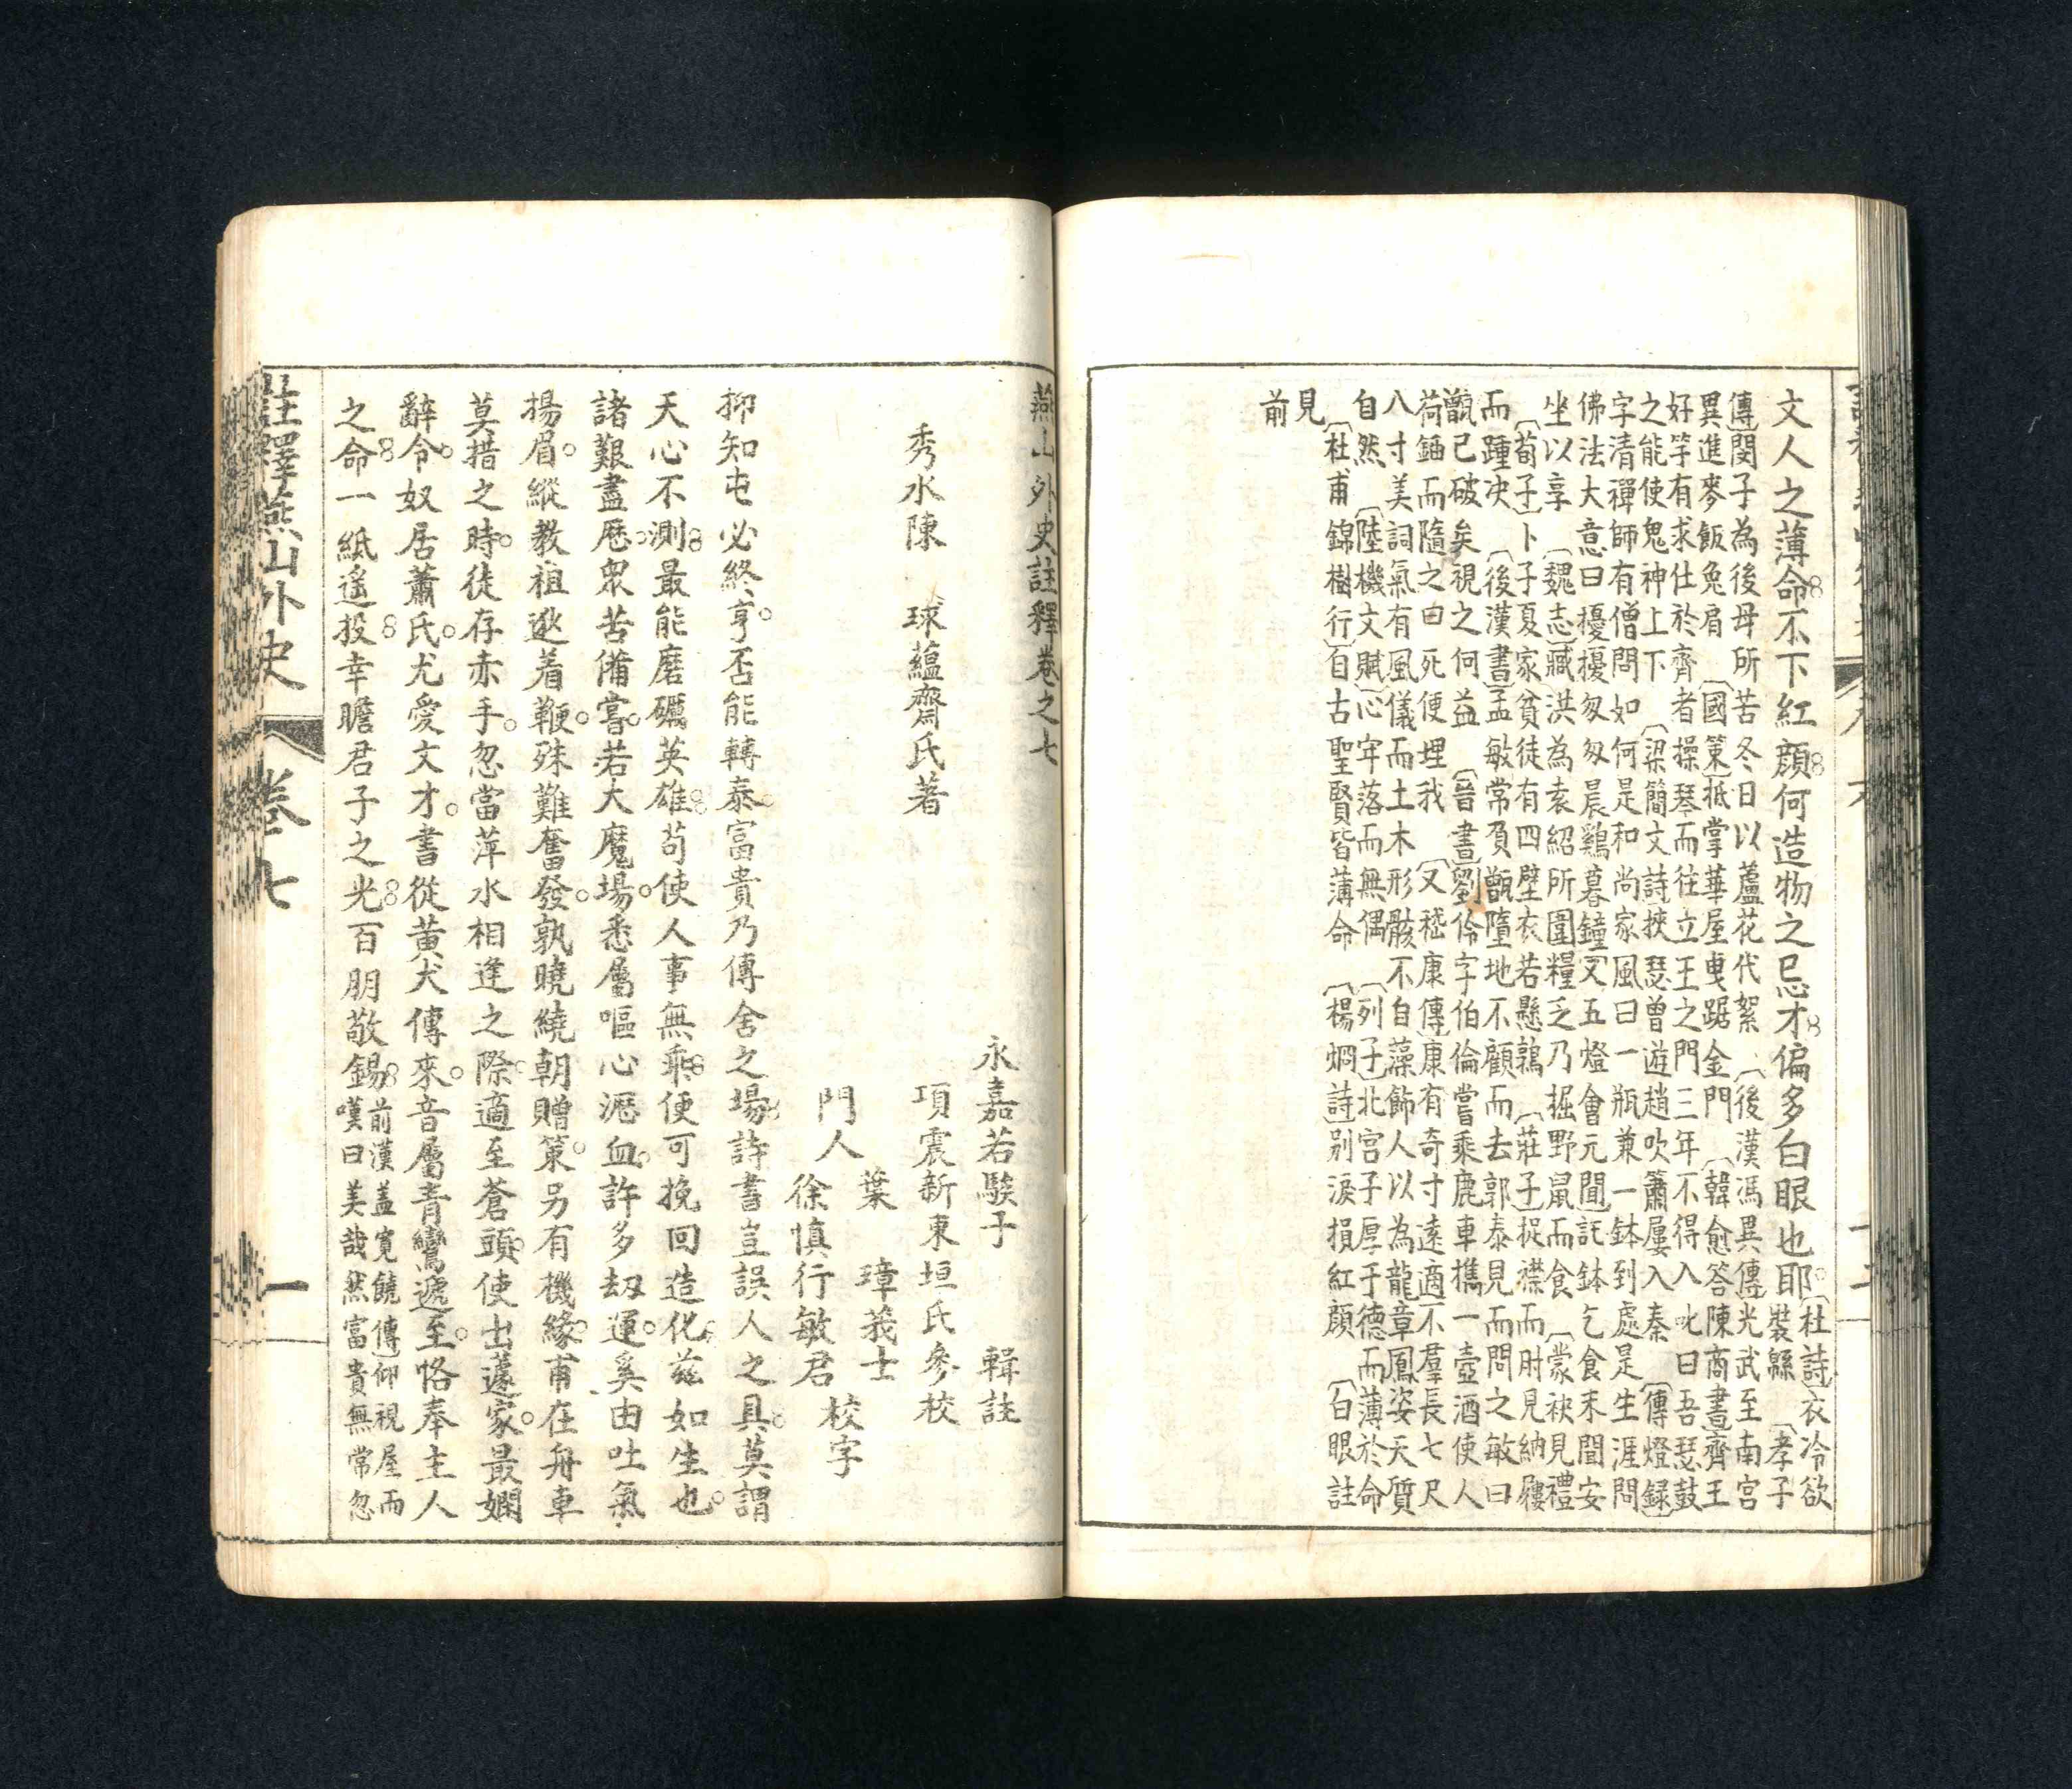 文人之薄命不下紅顏何造物之忌才偏多白眼也耶
〔杜詩〕衣冷欲
裝緜 〔孝子
傳〕閔子為後母所苦冬日以蘆花代絮 〔後漢馮異傳〕光武至南宮
異進麥飯兔肩 〔國策〕抵掌華屋曳踞金門 〔韓愈答陳商書〕齊王
好竽有求仕於齊者操琴而往立王之門三年不得入叱曰吾瑟鼓
之能使鬼神上下 〔梁簡文詩〕挾瑟曾遊趙吹簫屢入秦 〔傳燈録〕
字清禪師有僧問如何是和尚家風曰一瓶兼一鉢到處是生涯問
佛法大意曰擾擾匆匆晨鷄暮鐘〔又五燈會元聞〕託鉢乞食未聞安
坐以享 〔魏志〕臧洪為袁紹所圍糧乏乃掘野鼠而食 〔蒙袂見禮
〔荀子〕卜子夏家貧徒有四壁衣若懸鶉 〔莊子〕捉襟而肘見納屨
而踵決 〔後漢書〕孟敏常負甑墮地不顧而去郭泰見而問之敏曰
甑已破矣視之何益 〔晉書〕劉伶字伯倫嘗乘鹿車攜一壺酒使人
荷鍤而隨之曰死便埋我 〔又嵇康傳〕康有奇寸遠適不羣長七尺
八寸美詞氣有風儀而土木形骸不自藻飾人以為龍章鳳姿天質
自然 〔陸機文賦〕心牢落而無偶 〔列子〕北宮子厚于德而薄於命
〔杜甫錦樹行〕自古聖賢皆薄命 〔楊烱詩〕別淚損紅顏 〔白眼註
見
前
燕山外史註釋卷之七
永嘉若騤子 輯註
秀水陳 球蘊齋氏著
項震新東垣氏參校
葉 璋莪士
門人 校字
徐慎行敏君
抑知屯必終亨否能轉泰富貴乃傳舍之場詩書豈誤人之具莫謂
天心不測最能磨礪英雄苟使人事無乖便可挽回造化茲如生也
諸艱盡歷衆苦備嘗若大魔場悉屬嘔心瀝血許多刼運奚由吐氣
揚眉縱教祖逖着鞭殊難奮發孰曉繞朝贈策另有機緣甫在舟車
莫措之時徒存赤手忽當萍水相逢之際適至蒼頭使出蘧家最嫻
辭令奴居蕭氏尤愛文才書從黄犬傳來音屬青鸞遞至恪奉主人
之命一紙遙投幸瞻君子之光百朋敬錫
前漢蓋寬饒傳〕仰視屋而
嘆曰美哉然富貴無常忽
註釋燕山外史 卷七 一